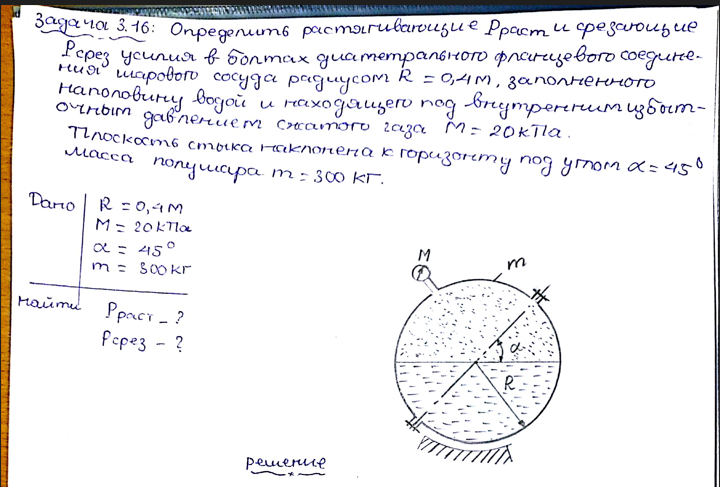 Задача 3.16: Определить растягивающие Pраст и срезающие
Pсрез усилия в болтах диаметрального фланцевого соедине-
ния шарового сосуда радиусом R = 0,4 м, заполненного
наполовину водой и находящего под внутренним избыт-
очным давлением сжатого газа M = 20 кПа.
Плоскость стыка наклонена к горизонту под углом α = 45°
масса полушара m = 300 кг.
Дано
R = 0,4 м
M = 20 кПа
α = 45°
m = 300 кг
найти
Pраст - ?
Pсрез - ?
M
m
α
R
решение